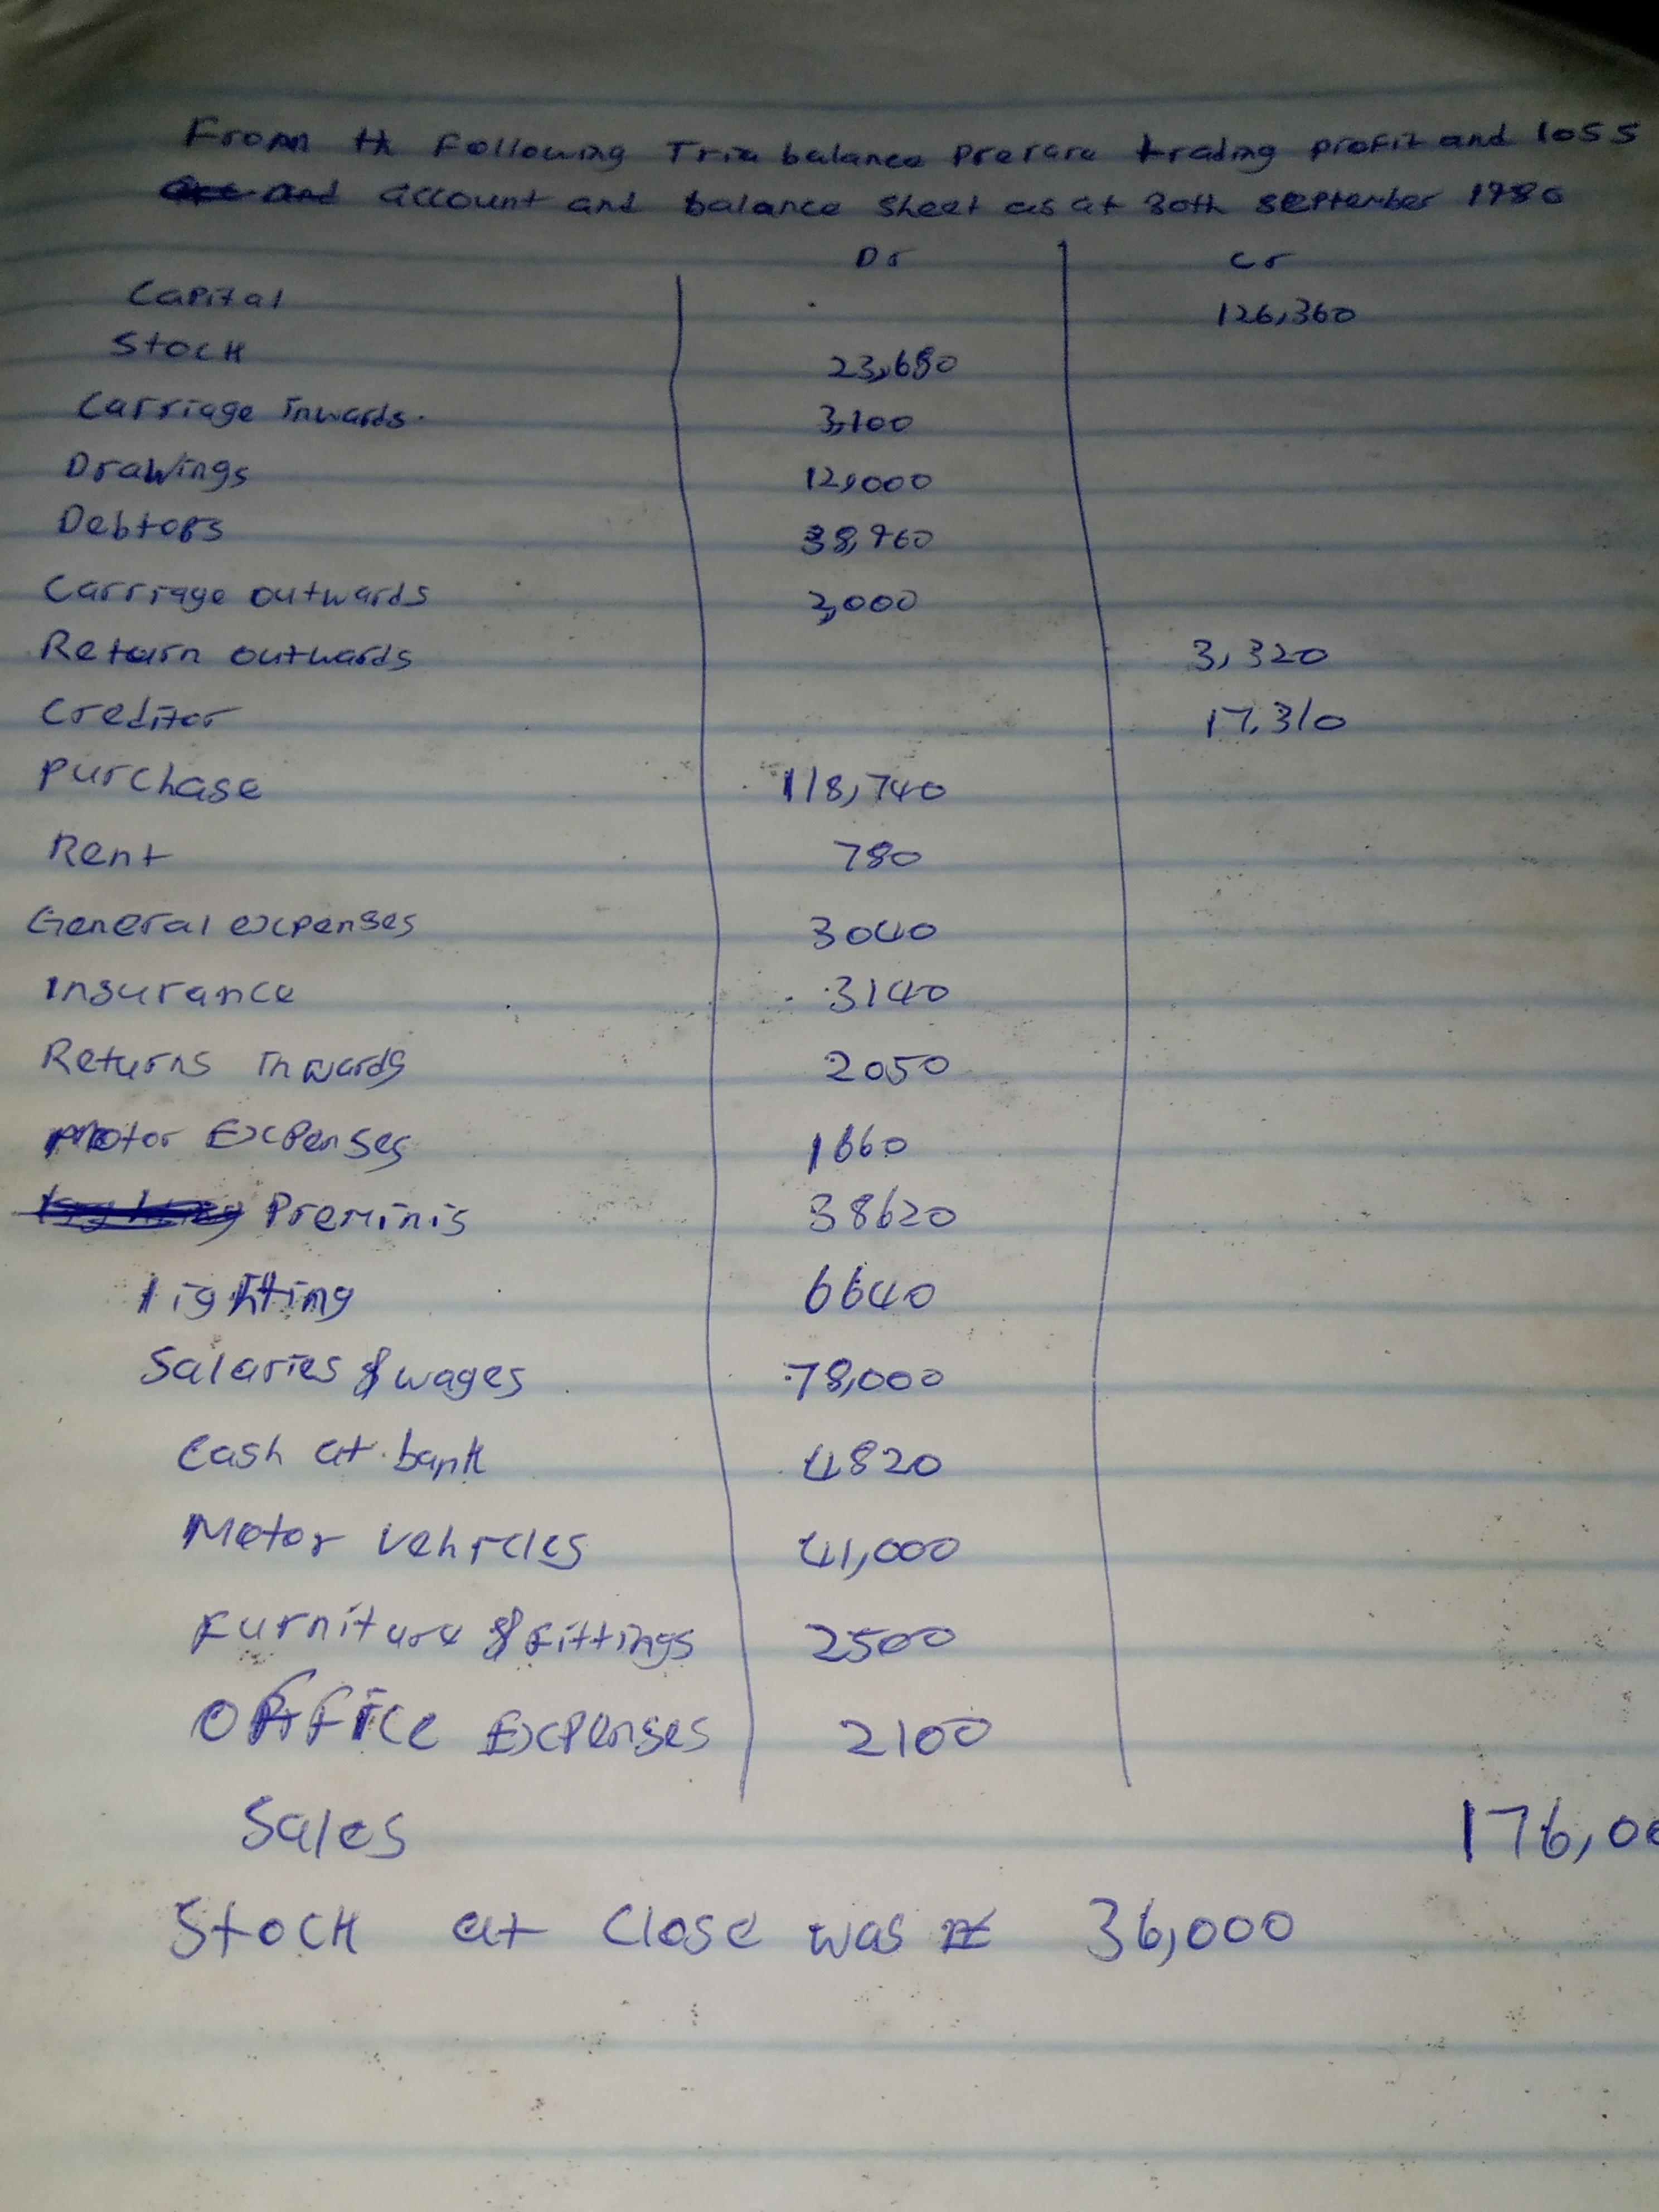 From th Following Tria balance Prerare trading profit and loss
account and balance sheet as at 30th september 1986
Dr Cr
Capital 126,360
Stock 23,680
Carriage Inwards. 3,100
Drawings 12,000
Debtors 38,960
Carriage outwards 2,000
Return outwards 3,320
Creditor 17,310
Purchase 118,740
Rent 780
General expenses 3040
Insurance 3140
Returns Inwards 2050
Motor Expenses 1660
Preminis 38620
lighting 6640
Salaries & wages 78,000
Cash at bank 4820
Motor vehicles 41,000
Furniture & Fittings 2500
Office Expenses 2100
Sales
Stock at Close was 36,000